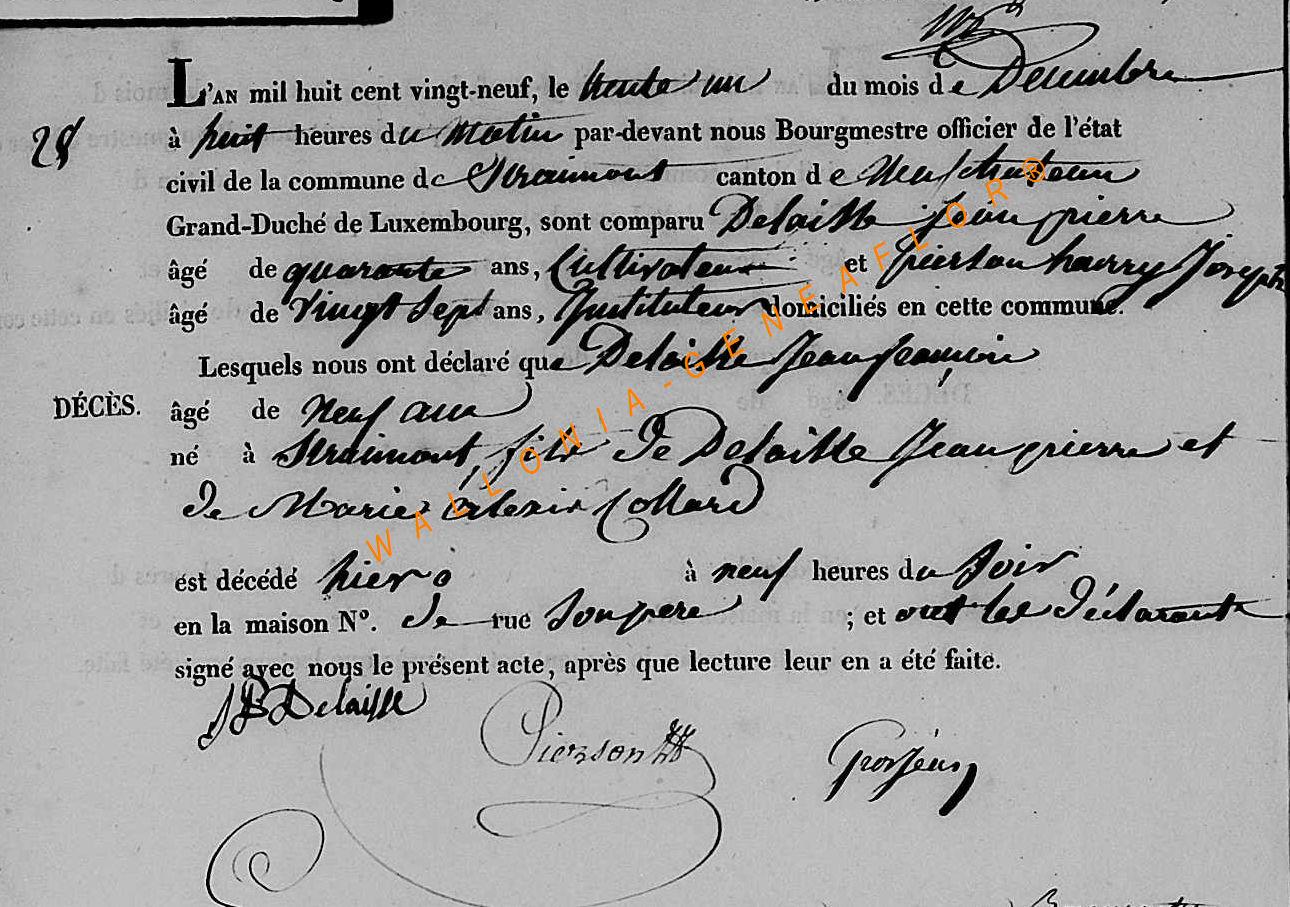 L'AN mil huit cent vingt-neuf, le trente un du mois de Decembre
28
à huit heures du Matin par-devant nous Bourgmestre officier de l'état
civil de la commune de Straimont canton de Neufchateau
Grand-Duché de Luxembourg, sont comparu Delaisse jean pierre
âgé de quarante ans, Cultivateur et pierson henry Joseph
âgé de Vingt Sept ans, Instituteur domiciliés en cette commune.
Lesquels nous ont déclaré que Delaisse Jean françois
DÉCÈS. âgé de Neuf ans
né à Straimont, fils De Delaisse Jean pierre et
De Marie alexis Collard
est décédé hier à neuf heures du Soir
en la maison N°. de rue Son pere ; et ont les Déclarants
signé avec nous le présent acte, après que lecture leur en a été faite.
JP Delaisse Pierson Grosjean
WALLONIA-GENEAFLOR®